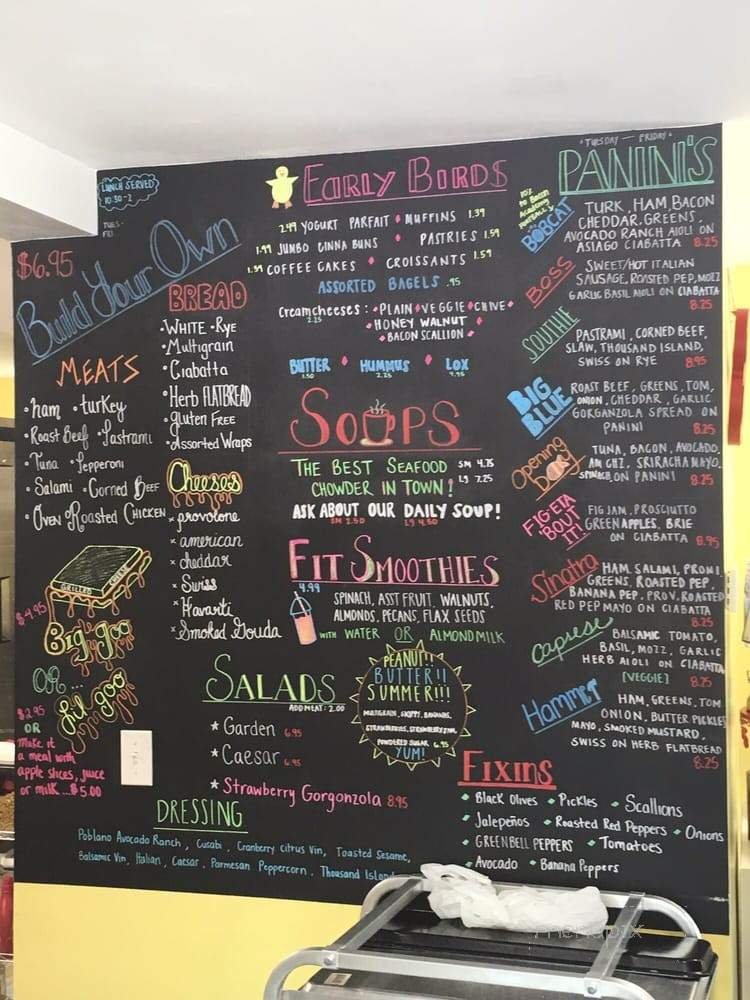 LUNCH SERVED
10:30-2
TUES-
FRI
$6.95
Build Your Own
MEATS
• ham • turkey
• Roast Beef • Pastrami
• Tuna • Pepperoni
• Salami • Corned Beef
• Oven Roasted Chicken
GRILLED CHEESE
$4.95
Big goo
OR...
Lil goo
$2.95
OR
make it
a meal with
apple slices, juice
or milk...$5.00
BREAD
• WHITE • Rye
• Multigrain
• Ciabatta
• Herb FLATBREAD
• Gluten FREE
• Assorted Wraps
Cheeses
× provolone
× american
× cheddar
× Swiss
× Havarti
× Smoked Gouda
EARLY BIRDS
2.49 YOGURT PARFAIT • MUFFINS 1.39
1.99 JUMBO CINNA BUNS • PASTRIES 1.59
1.59 COFFEE CAKES • CROISSANTS 1.59
ASSORTED BAGELS .95
Creamcheeses: • PLAIN • VEGGIE • CHIVE •
2.25
• HONEY WALNUT •
• BACON SCALLION •
BUTTER • HUMMUS • LOX
1.50 2.25 4.95
SOUPS
THE BEST SEAFOOD SM 4.75
CHOWDER IN TOWN! LG 7.25
ASK ABOUT OUR DAILY SOUP!
SM 2.50 LG 4.50
FIT SMOOTHIES
4.99
SPINACH, ASST FRUIT, WALNUTS,
ALMONDS, PECANS, FLAX SEEDS
WITH WATER OR ALMONDMILK
SALADS
ADD MEAT: 2.00
* Garden 6.95
* Caesar 6.95
* Strawberry Gorgonzola 8.95
PEANUT!!
BUTTER!!
SUMMER!!!
MULTIGRAIN, SKIPPY, BANANAS,
STRAWBERRIES, STRAWBERRY JAM,
POWDERED SUGAR 6.95
YUM!
DRESSING
Poblano Avocado Ranch, Cusabi, Cranberry Citrus Vin, Toasted Sesame,
Balsamic Vin, Italian, Caesar, Parmesan Peppercorn, Thousand Island
"TUESDAY — FRIDAY"
PANINI'S
10%
to Bacon
Academy
FOOTBALL
BOBCAT
TURK, HAM, BACON
CHEDDAR, GREENS,
AVOCADO RANCH AIOLI ON
ASIAGO CIABATTA 8.25
BOSS
SWEET/HOT ITALIAN
SAUSAGE, ROASTED PEP, MOZZ
GARLIC BASIL AIOLI ON CIABATTA
8.25
SOUTHIE
PASTRAMI, CORNED BEEF,
SLAW, THOUSAND ISLAND,
SWISS ON RYE 8.95
BIG
BLUE
ROAST BEEF, GREENS, TOM,
ONION, CHEDDAR, GARLIC
GORGANZOLA SPREAD ON
PANINI 8.25
Opening
DAY
TUNA, BACON, AVOCADO,
AM CHZ, SRIRACHA MAYO,
SPINACH, ON PANINI 8.25
FIGETA
'BOUT
IT!
FIG JAM, PROSCIUTTO
GREEN APPLES, BRIE
ON CIABATTA 8.95
Sinatra
HAM, SALAMI, PRONI
GREENS, ROASTED PEP,
BANANA PEP, PROV, ROASTED
RED PEP MAYO ON CIABATTA
8.25
Caprese
BALSAMIC TOMATO,
BASIL, MOZZ, GARLIC
HERB AIOLI ON CIABATTA
[VEGGIE] 8.25
Hammer
HAM, GREENS, TOM
ONION, BUTTER PICKLES
MAYO, SMOKED MUSTARD,
SWISS ON HERB FLATBREAD
8.25
FIXINS
• Black Olives • Pickles • Scallions
• Jalepeños • Roasted Red Peppers • Onions
• GREEN BELL PEPPERS • Tomatoes
• Avocado • Banana Peppers
menupix